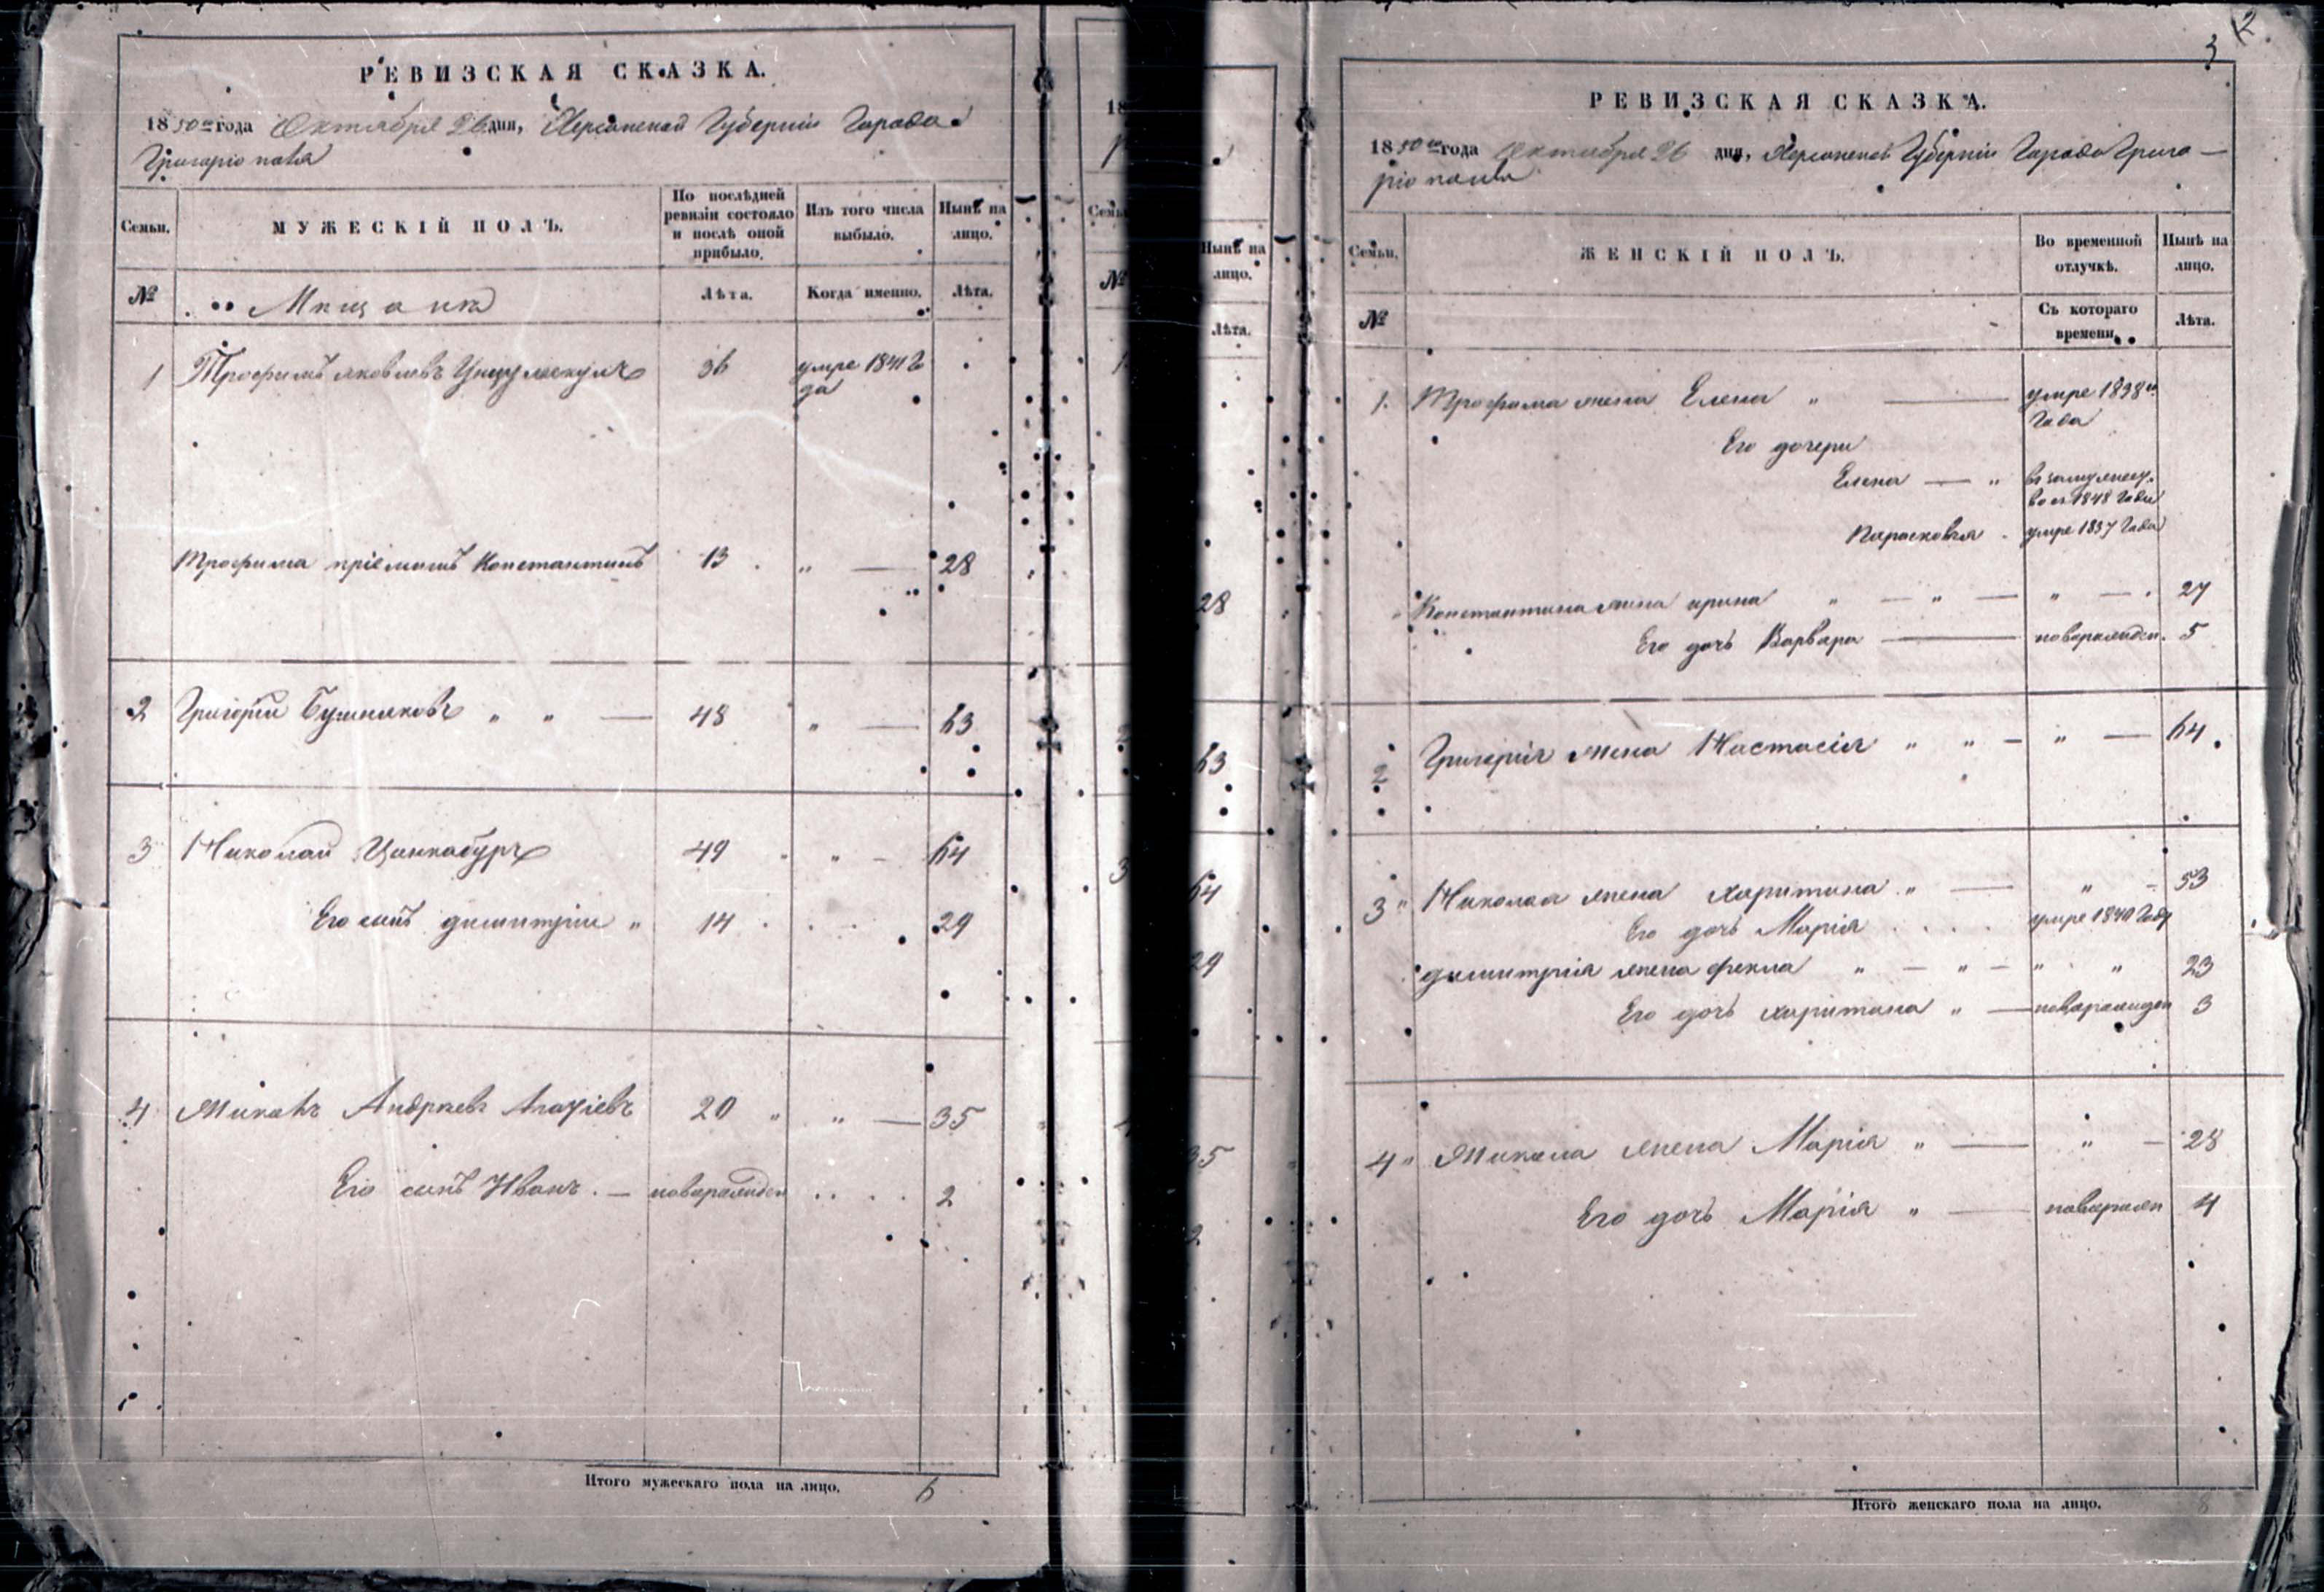 РЕВИЗСКАЯ СКАЗКА.
1850го года Октября 26 дня, Херсонской Губерніи Города
Григоріополя
Семьи.
МУЖЕСКІЙ ПОЛЪ.
По послѣдней ревизіи состояло и послѣ оной прибыло.
Изъ того числа выбыло.
Нынѣ на лицо.
№
Лѣта.
Когда именно.
Лѣта.
1 Трофимъ яковлевъ 36 умре 1841 го
да
Трофима пріемышъ Константинъ 13 " — 28
2 Григорій " " — 48 " — 63
3 Николай 49 " - 64
Его сынъ димитрій " 14 29
4 Андреевъ 20 " " — 35
Его сынъ Иванъ. — новорожден 2
Итого мужескаго пола на лицо. 6
Нынѣ на лицо.
Лѣта.
28
63
64
29
35
2
2
3
РЕВИЗСКАЯ СКАЗКА.
1850го года Октября 26 дня, Херсонской Губерніи Города Григо—
ріополя
Семьи.
ЖЕНСКІЙ ПОЛЪ.
Во временной отлучкѣ.
Нынѣ на лицо.
№
Съ котораго времени.
Лѣта.
1. Трофима жена Елена " — умре 1838го
Года
Его дочери
Елена — " в замужест.
во съ 1848 Года
Парасковья . умре 1837 Года
Константина жена ирина " — " — " — . 27
Его дочь Варвара — новорожден. 5
2 Григорія жена Настасія " " — " — 64
3 " Николая жена харитина " — " - 53
Его дочь Марія умре 1840 Году
димитрія жена фекла " — " — " " 23
Его дочь харитина " — новорожден 3
4 " жена Марія " — " — 28
Его дочь Марія " — новорожден 4
Итого женскаго пола на лицо.